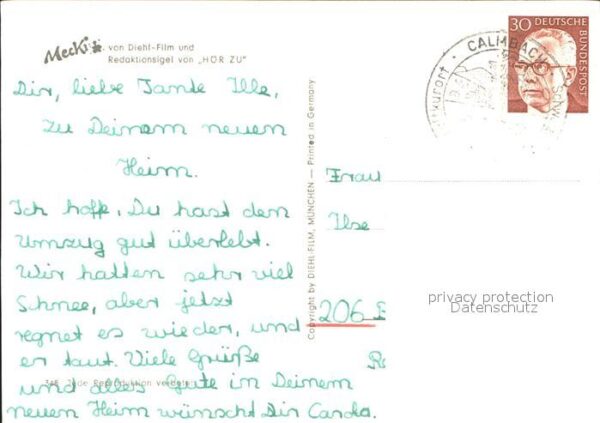 Mecki
von Diehl-Film und
Redaktionsigel von „HÖR ZU"
Dir, liebe Tante Ille,
zu Deinem neuen
Heim.
Ich hoffe, Du hast den
Umzug gut überlebt.
Wir hatten sehr viel
Schnee, aber jetzt
regnet es wieder, und
er taut. Viele Grüße
und alles Gute in Deinem
neuen Heim wünscht Dir Carola.
Jede Reproduktion verboten
Copyright by DIEHL-FILM, MÜNCHEN – Printed in Germany
30 DEUTSCHE
BUNDESPOST
CALMBACH
Frau
Ilse
206
privacy protection
Datenschutz